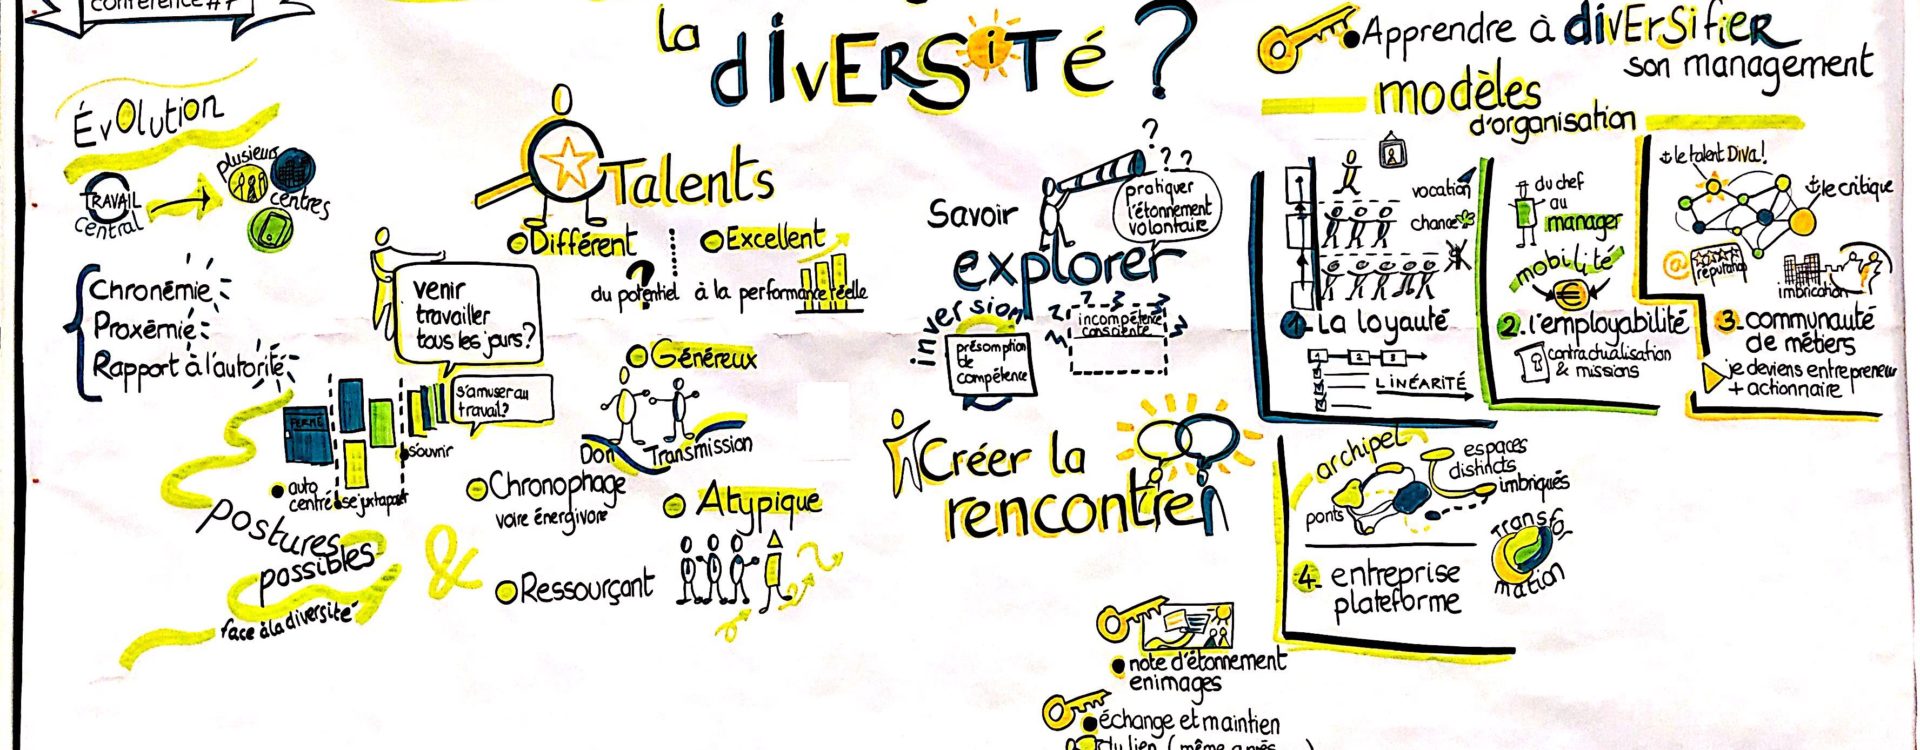 conférence #7
la
diversité ?
Évolution
TRAVAIL
central
plusieurs
centres
Chronémie
Proxémie
Rapport à l'autorité
venir
travailler
tous les jours?
s'amuser au
travail?
FERMÉ
s'ouvrir
auto
centré
se juxtaposer
postures
possibles
face à la diversité
&
Talents
Différent
Excellent
?
du potentiel
à la performance réelle
Généreux
Don
Transmission
Chronophage
voire énergivore
Atypique
Ressourçant
Savoir
explorer
? ? ? ?
pratiquer
l'étonnement
volontaire
inversion
présomption
de
compétence
incompétence
consciente
Créer la
rencontre
note d'étonnement
en images
échange et maintien
du lien (même après
Apprendre à diversifier
son management
modèles
d'organisation
vocation
chance
1. La loyauté
1 2 3
LINÉARITÉ
du chef
au
manager
mobilité
€
2. l'employabilité
contractualisation
& missions
± le talent Diva!
± le critique
@
imbrication
3. communauté
de métiers
je deviens entrepreneur
+ actionnaire
archipel
espaces
distincts
imbriqués
ponts
Transfor
mation
4. entreprise
plateforme